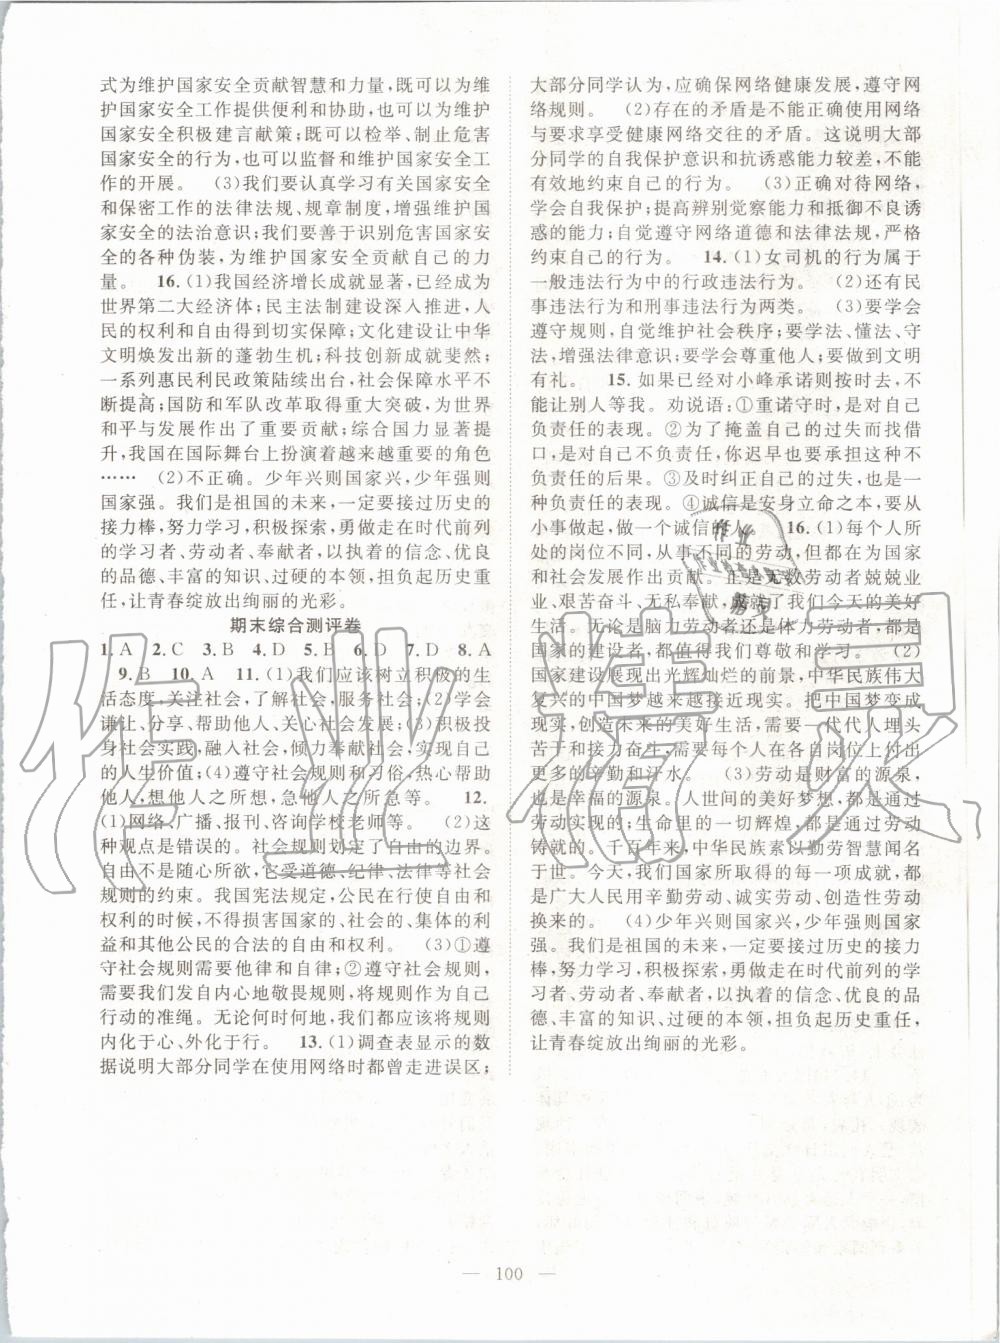 式为维护国家安全贡献智慧和力量,既可以为维
护国家安全工作提供便利和协助,也可以为维护
国家安全积极建言献策;既可以检举、制止危害
国家安全的行为,也可以监督和维护国家安全工
作的开展。 (3)我们要认真学习有关国家安全
和保密工作的法律法规、规章制度,增强维护国
家安全的法治意识;我们要善于识别危害国家安
全的各种伪装,为维护国家安全贡献自己的力
量。 16.(1)我国经济增长成就显著,已经成为
世界第二大经济体;民主法制建设深入推进,人
民的权利和自由得到切实保障;文化建设让中华
文明焕发出新的蓬勃生机;科技创新成就斐然;
一系列惠民利民政策陆续出台,社会保障水平不
断提高;国防和军队改革取得重大突破,为世界
和平与发展作出了重要贡献;综合国力显著提
升,我国在国际舞台上扮演着越来越重要的角色
…… (2)不正确。少年兴则国家兴,少年强则
国家强。我们是祖国的未来,一定要接过历史的
接力棒,努力学习,积极探索,勇做走在时代前列
的学习者、劳动者、奋斗者,以执着的信念、优良
的品德、丰富的知识、过硬的本领,担负起历史重
任,让青春绽放出绚丽的光彩。
期末综合测评卷
1. A 2. C 3. B 4. D 5. B 6. D 7. D 8. A
9. B 10. A 11.(1)我们应该树立积极的生
活态度,关注社会,了解社会,服务社会;(2)学会
谦让、分享、帮助他人、关心社会发展;(3)积极投
身社会实践,融入社会,倾力奉献社会,实现自己
的人生价值;(4)遵守社会规则和习俗,热心帮助
他人,想他人之所想,急他人之所急等。 12.
(1)网络、广播、报刊、咨询学校老师等。 (2)这
种观点是错误的。社会规则划定了自由的边界。
自由不是随心所欲,它受道德、纪律、法律等社会
规则的约束。我国宪法规定,公民在行使自由和
权利的时候,不得损害国家的、社会的、集体的利
益和其他公民的合法的自由和权利。 (3)①遵
守社会规则需要他律和自律;②遵守社会规则,
需要我们发自内心地敬畏规则,将规则作为自己
行动的准绳。无论何时何地,我们都应该将规则
内化于心、外化于行。 13.(1)调查表显示的数
据说明大部分同学在使用网络时都曾走进误区;
大部分同学认为,应确保网络健康发展,遵守网
络规则。 (2)存在的矛盾是不能正确使用网络
与要求享受健康网络交往的矛盾。这说明大部
分同学的自我保护意识和抗诱惑能力较差,不能
有效地约束自己的行为。 (3)正确对待网络,
学会自我保护;提高辨别觉察能力和抵御不良诱
惑的能力;自觉遵守网络道德和法律法规,严格
约束自己的行为。 14.(1)女司机的行为属于
一般违法行为中的行政违法行为。 (2)还有民
事违法行为和刑事违法行为两类。 (3)要学会
遵守规则,自觉维护社会秩序;要学法、懂法、守
法,增强法律意识;要学会尊重他人;要做到文明
有礼。 15.如果已经对小峰承诺则按时去,不
能让别人等我。劝说语:①重诺守时,是对自己
负责任的表现。②为了掩盖自己的过失而找借
口,是对自己不负责任,你迟早也要为这种不负
责任的后果。③及时纠正自己的过失,也是一
种负责任的表现。④诚信是安身立命之本,要从
小事做起,做一个诚信的人。 16.(1)每个人所
处的岗位不同,从事不同的劳动,但都在为国家
和社会发展作出贡献。正是无数劳动者兢兢业
业、艰苦奋斗、无私奉献,成就了我们今天的美好
生活。无论是脑力劳动者还是体力劳动者,都是
国家的建设者,都值得我们尊敬和学习。 (2)
国家建设展现出光辉灿烂的前景,中华民族伟大
复兴的中国梦越来越接近现实。把中国梦变成
现实,创造未来的美好生活,需要一代代人埋头
苦干和接力奋斗,需要每个人在各自岗位上付出
更多的辛勤和汗水。 (3)劳动是财富的源泉,
也是幸福的源泉。人世间的美好梦想,都是通过
劳动实现的;生命里的一切辉煌,都是通过劳动
铸就的。千百年来,中华民族素以勤劳智慧闻名
于世。今天,我们国家所取得的一切成就,都
是广大人民用辛勤劳动、诚实劳动、创造性劳动
换来的。 (4)少年兴则国家兴,少年强则国家
强。我们是祖国的未来,一定要接过历史的接力
棒,努力学习,积极探索,勇做走在时代前列的学
习者、劳动者、奋斗者,以执着的信念、优良的品
德、丰富的知识、过硬的本领,担负起历史重任,
让青春绽放出绚丽的光彩。
— 100 —
作业精灵